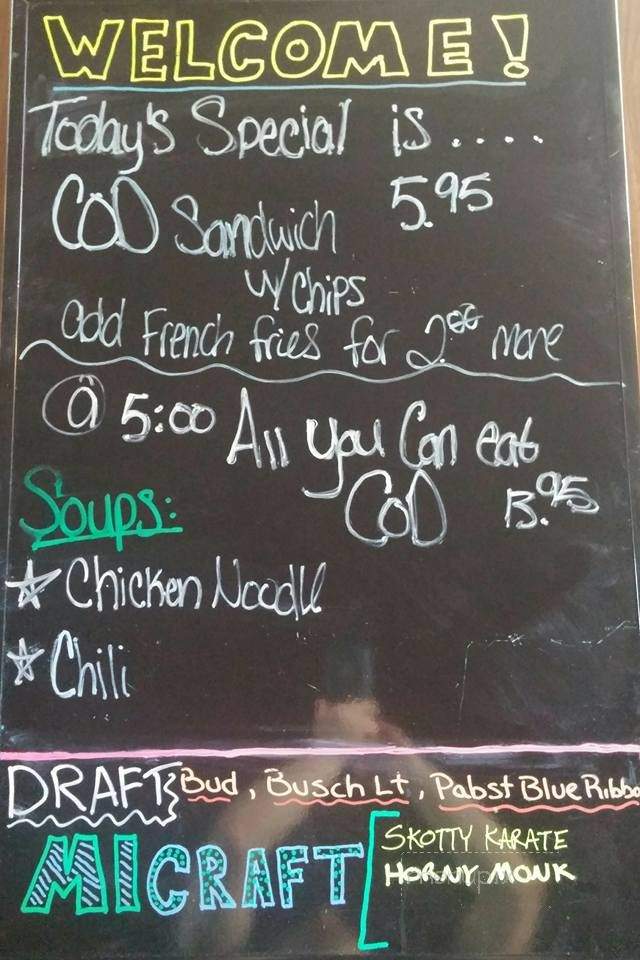 WELCOME!
Today's Special is ....
COD Sandwich 5.95
w/ Chips
add French fries for 2.00 more
@ 5:00 All you Can eat
COD 13.95
Soups:
☆ Chicken Noodle
☆ Chili
DRAFT} Bud, Busch Lt, Pabst Blue Ribbo
MI CRAFT [ SKOTTY KARATE
HORNY MONK